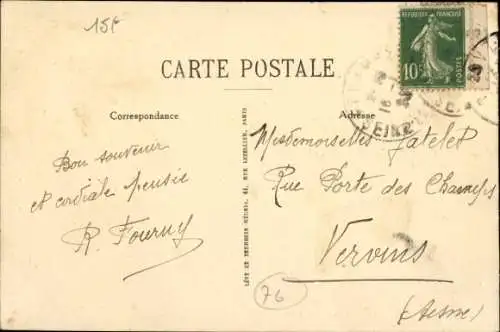 15f
RÉPUBLIQUE FRANÇAISE
10c
POSTES
SEINE
CARTE POSTALE
Correspondance
Adresse
Bon souvenir
et cordiale pensée
R. Fourny
Mesdemoiselles Fatelet
Rue Porte des Champs
Vervins
(Aisne)
LÉVY ET NEURDEIN RÉUNIS, 44, RUE LETELLIER, PARIS
76